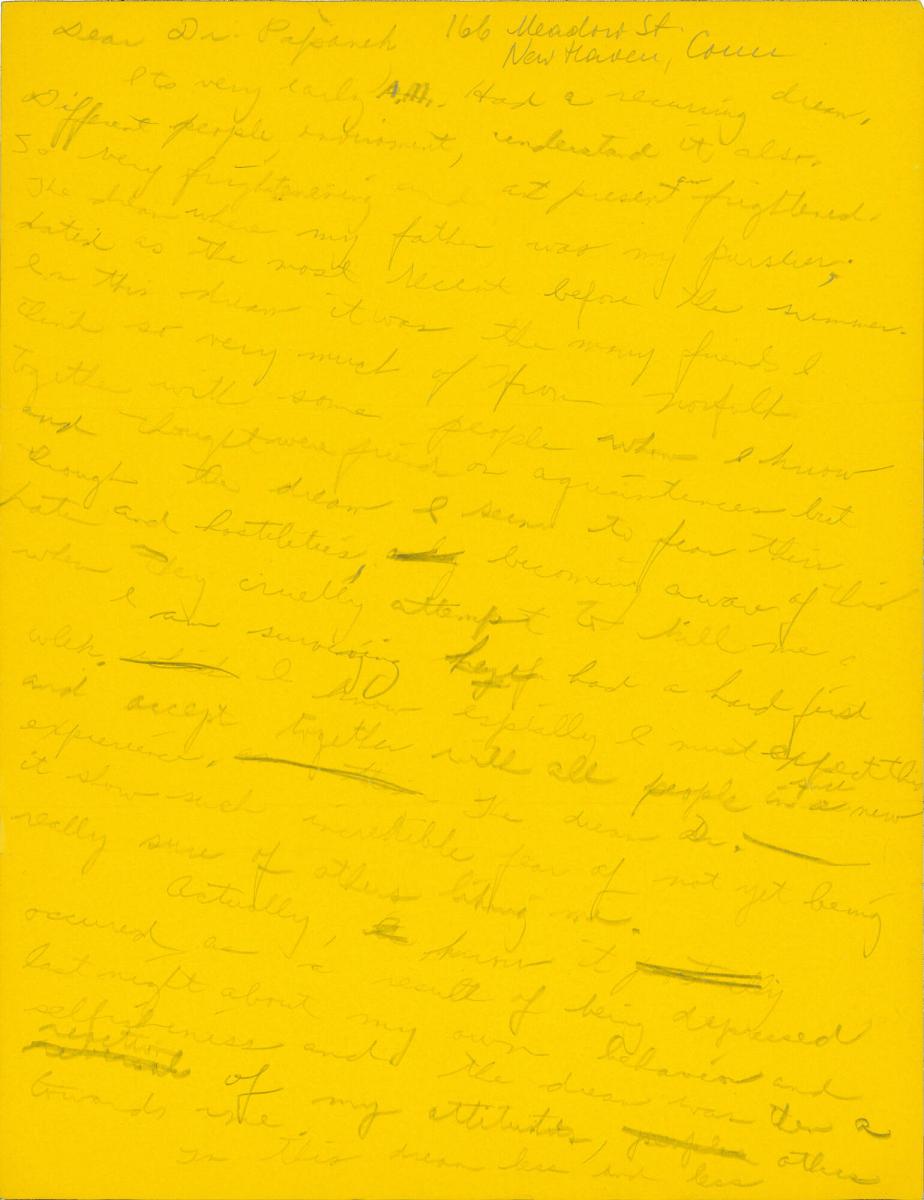 Dear Dr. Papanek
166 Meadow St.
New Haven, Conn
Its very early A.M. Had a recurring dream.
Different people, enviroment, understand it also.
So very frightening and at present am frightened.
The dream where my father was my pursuer,
dated as the most recent before the summer.
In this dream it was the many friends I
think so very much of from Norfolk
together with some people whom I know
and thought were friend or aquaintences but
through the dream I seem to fear their
hate and hostilities, becoming aware of this
when they cruelly attempt to kill me.
I am surviving had a hard first
week. I know espially I must expect this
and accept together with all people in a new
experience. The dream Dr.
it show such incredible fear of not yet being
really sure of others liking me.
Actually, know it
occured as a result of being depressed
last night about my own behavior and
selfishness and the dream was then a
of my attitudes, others
towards me.
In this dream less and less